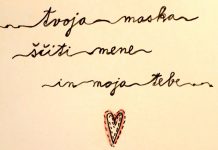 tvoja maska
ščiti mene
in moja tebe...